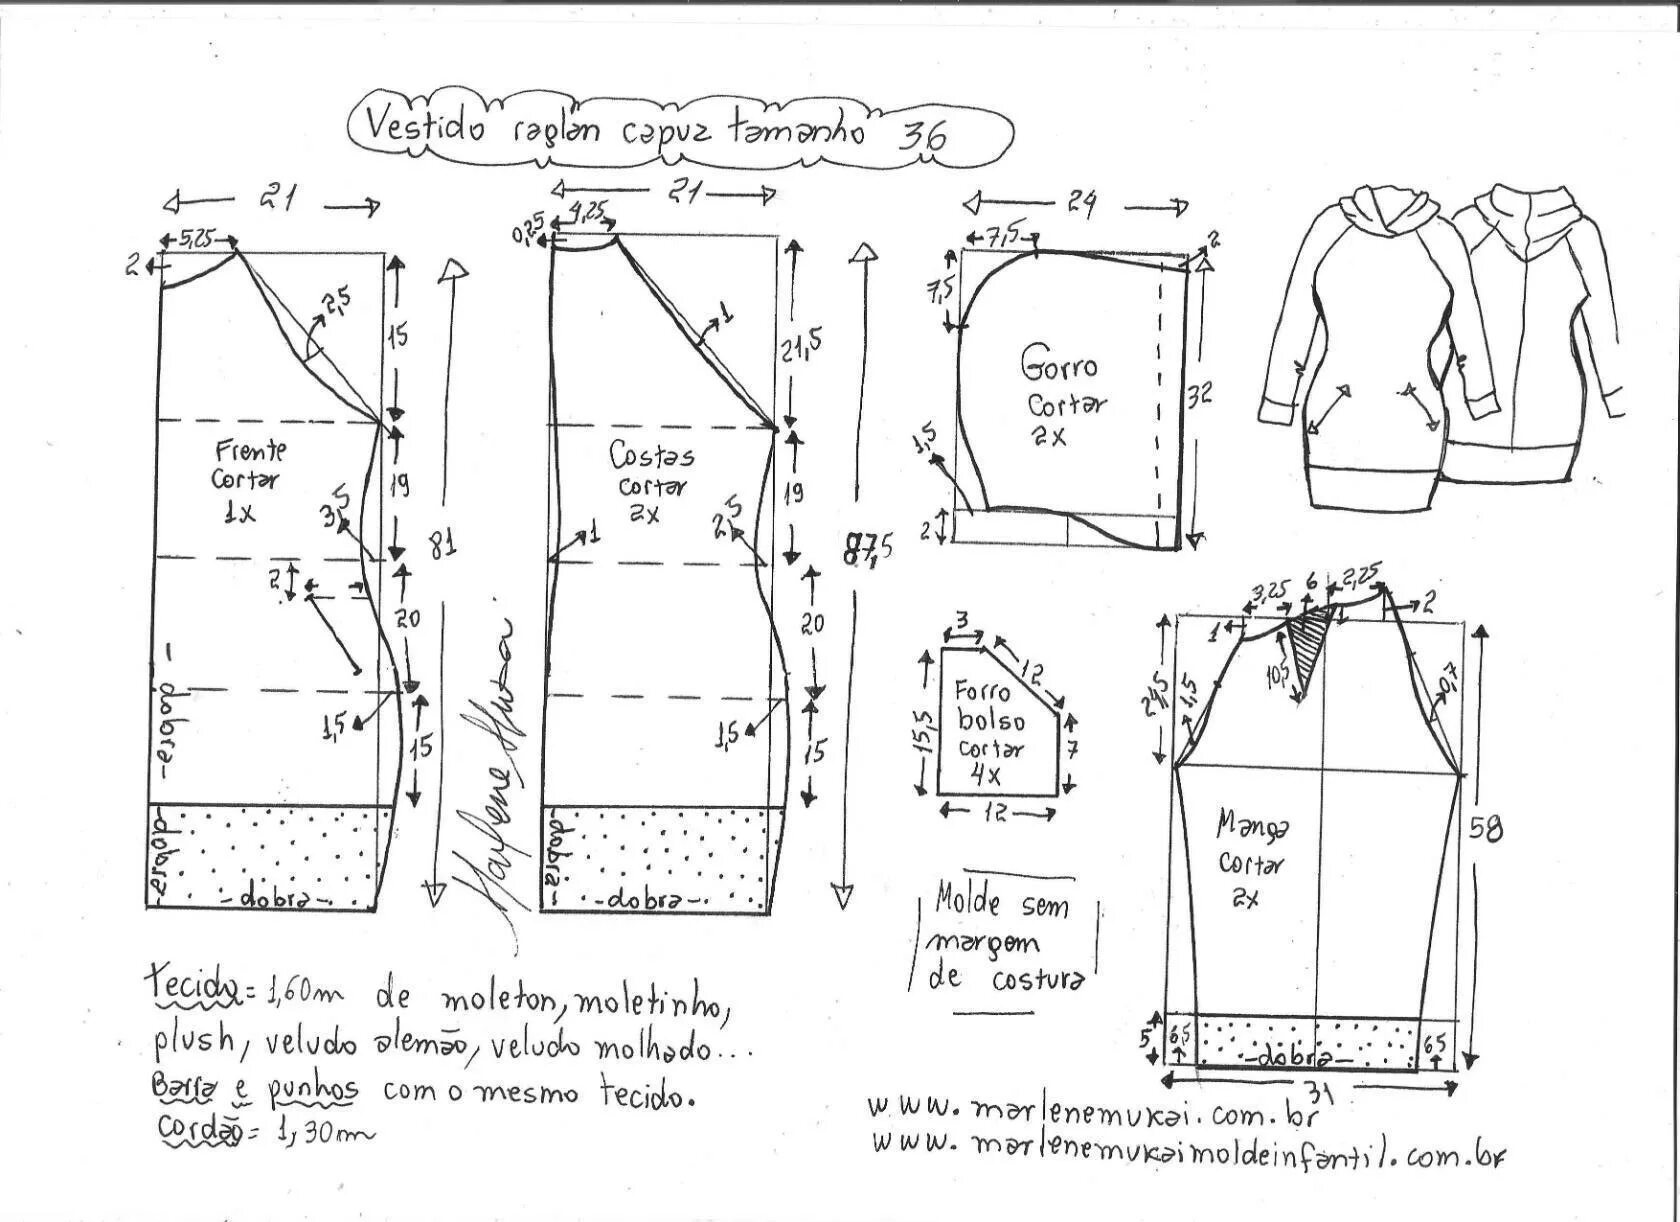 Vestido raglan capuz tamanho 36
21
5,25
2
2,5
15
Frente
cortar
1x
3,5
19
81
2
20
- dobra -
1,5
15
- dobra -
- dobra -
21
0,25
4,25
1
21,5
Costas
cortar
2x
1
2,5
19
87,5
20
1,5
15
- dobra -
- dobra -
24
7,5
2
7,5
Gorro
cortar
2x
32
1,5
2
3
12
15,5
Forro
bolso
cortar
4x
7
12
3,25
6
2,25
1
1
2
10,5
24,5
1,5
0,7
Manga
cortar
2x
58
5
6,5
- dobra -
6,5
31
Molde sem
margem
de costura
Tecido = 1,60m de moleton, moletinho,
plush, veludo alemão, veludo molhado...
Barra e punhos com o mesmo tecido.
Cordão = 1,30m
www.marlenemukai.com.br
www.marlenemukaimoldeinfantil.com.br